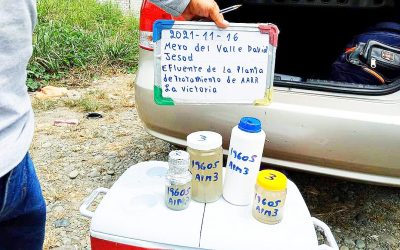 2021-11-16
Mero del Valle David
Jesod
Efluente de la Planta
de tratamiento de AARR
La Victoria
3
19605
AIM3
19605
AIM3
19605
AIM3
3
19605
AIM3